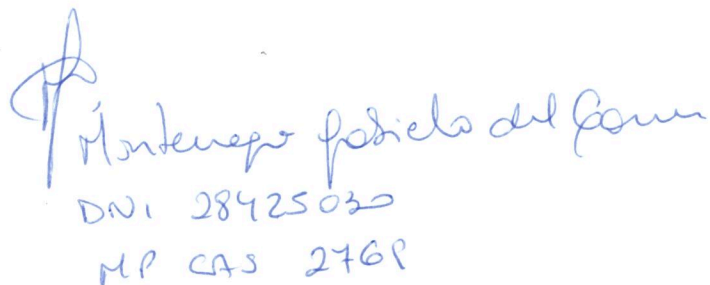 Montenegro Gabriela del Carmen
DNI 28425030
MP CAS 2768